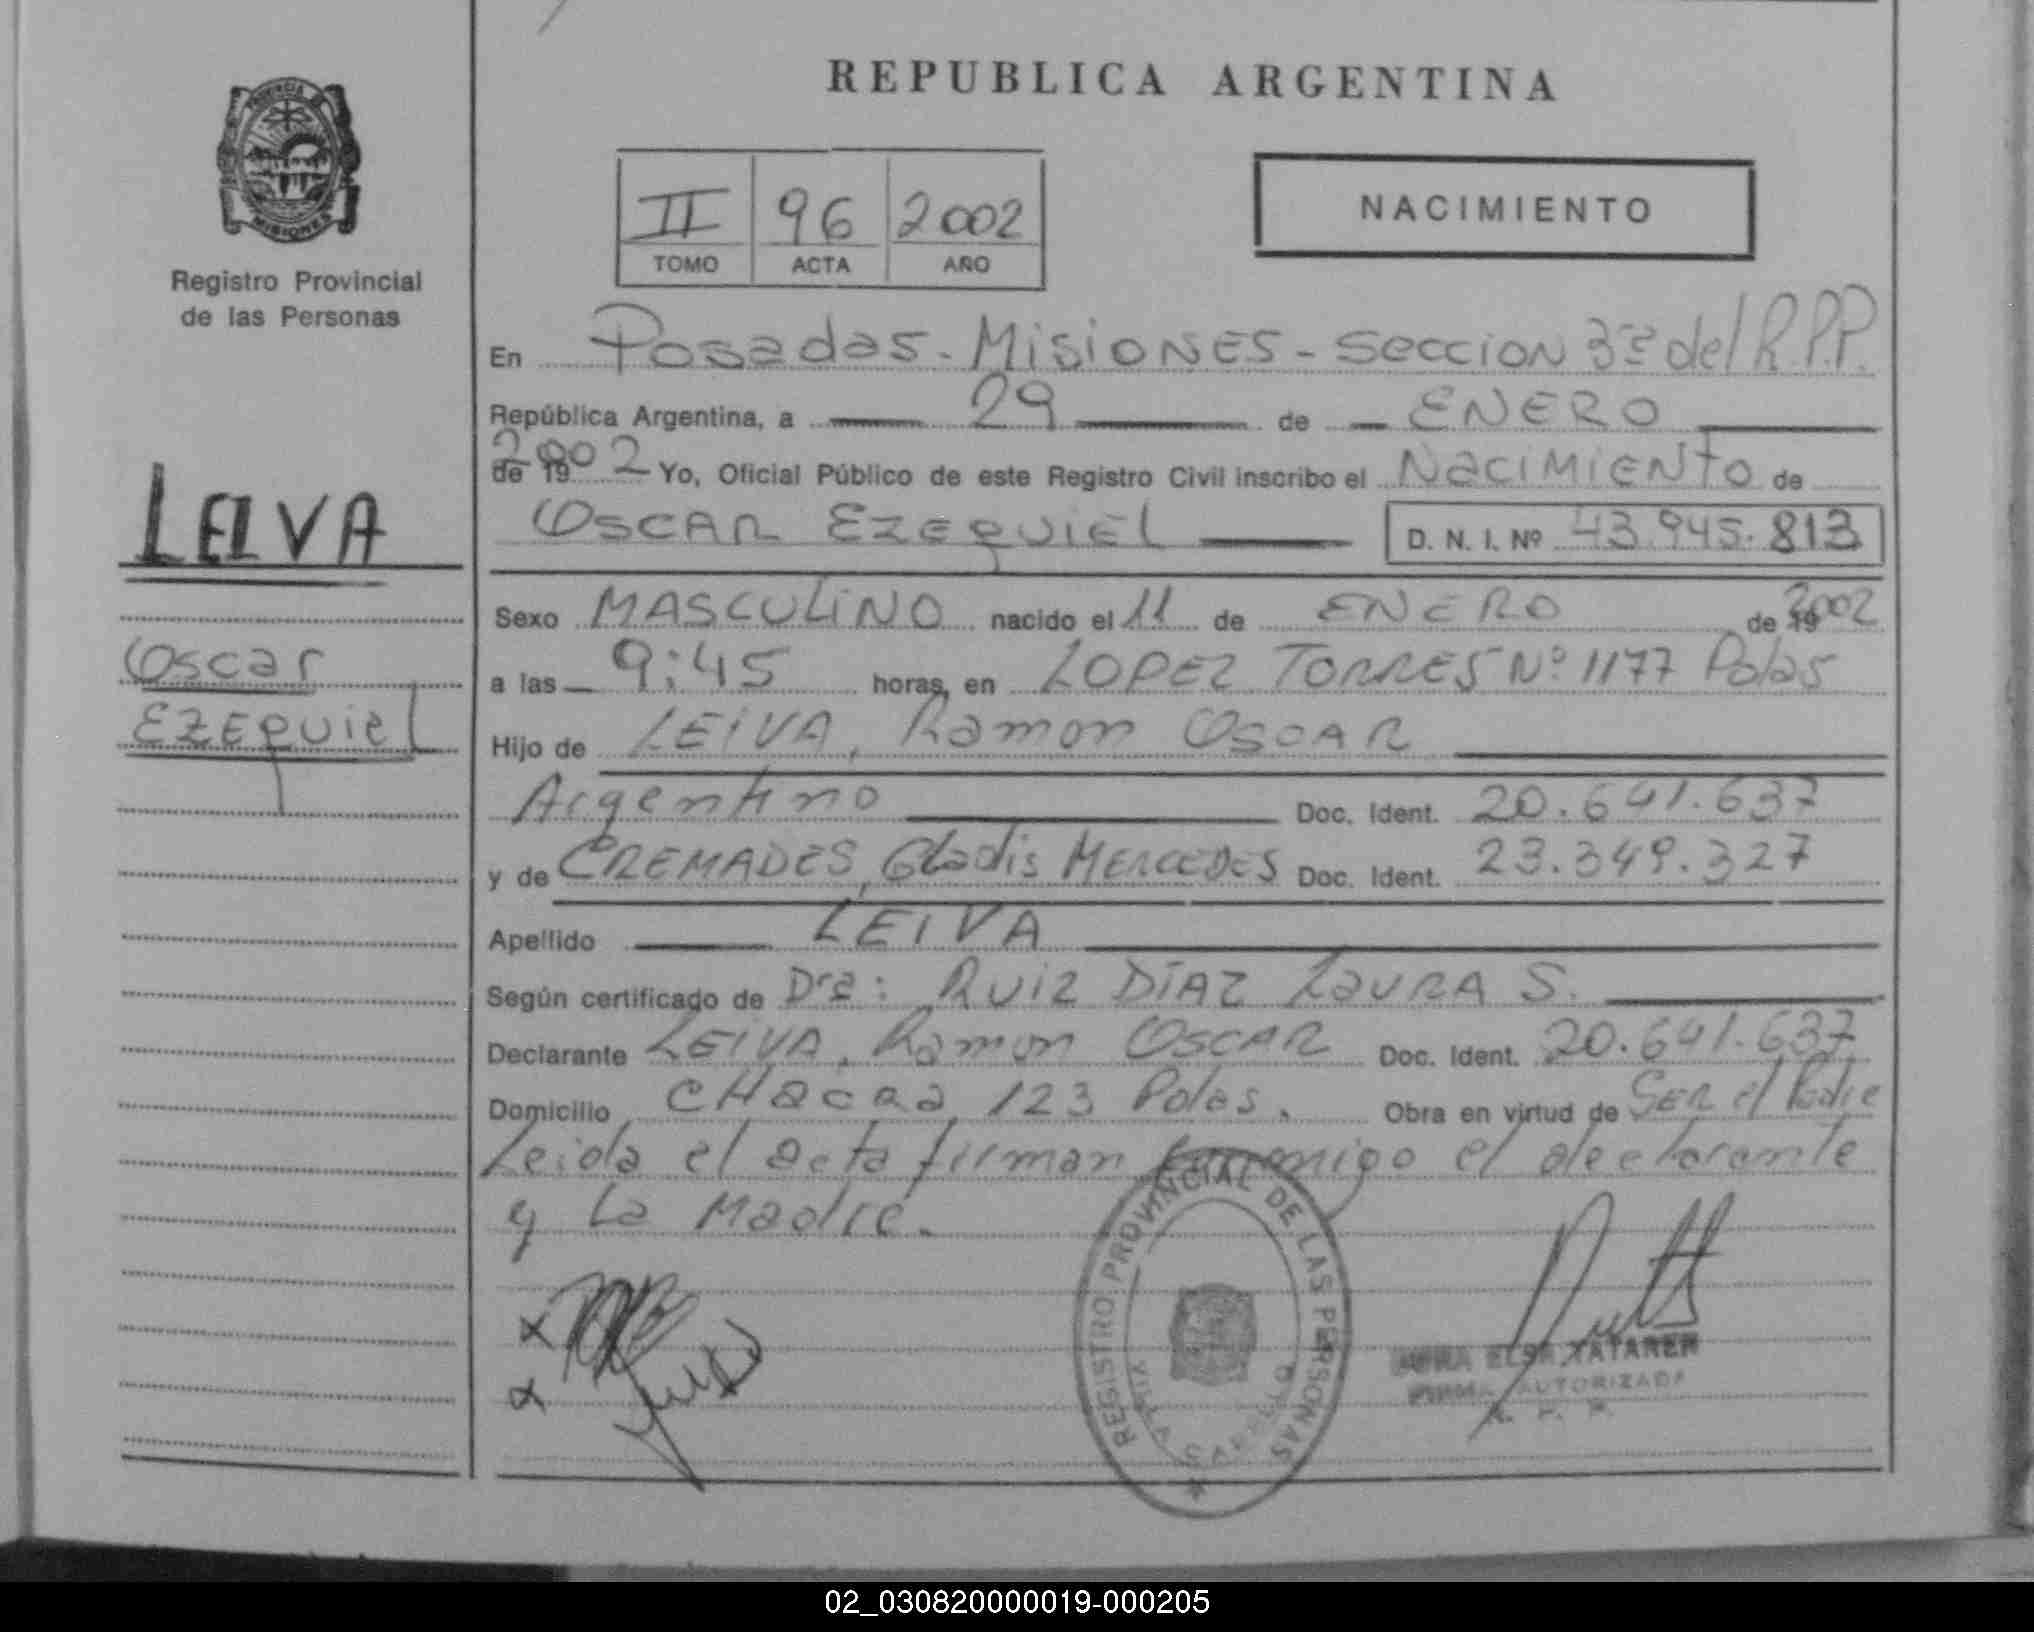 REPUBLICA ARGENTINA
PROVINCIA DE
MISIONES
Registro Provincial
de las Personas
II 96 2002
TOMO ACTA AÑO
NACIMIENTO
LEIVA
Oscar
EZEQUIEL
En Posadas - Misiones - Seccion 3ª del R.P.P.
República Argentina, a 29 de ENERO
de 19 2002 Yo, Oficial Público de este Registro Civil inscribo el Nacimiento de
OSCAR EZEQUIEL D. N. I. Nº 43.945.813
Sexo MASCULINO nacido el 11 de ENERO de 19 2002
a las 9:45 horas, en LOPEZ TORRES Nº 1177 Pdas
Hijo de LEIVA, Ramon OSCAR
Argentino Doc. Ident. 20.641.637
y de CREMADES, Gladis MERCEDES Doc. Ident. 23.349.327
Apellido LEIVA
Según certificado de Dra: RUIZ DIAZ LAURA S.
Declarante LEIVA, Ramon OSCAR Doc. Ident. 20.641.637
Domicilio CHacra 123 Pdas. Obra en virtud de SER el Padre
Leida el acta firman conmigo el declarante
y La Madre.
REGISTRO PROVINCIAL DE LAS PERSONAS
ELSA TATAREN
FIRMA AUTORIZADA
R. P. P.
02_030820000019-000205